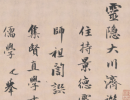 靈隱大川濟
住持景德
師祖閣誤
集賢直學士
儒學